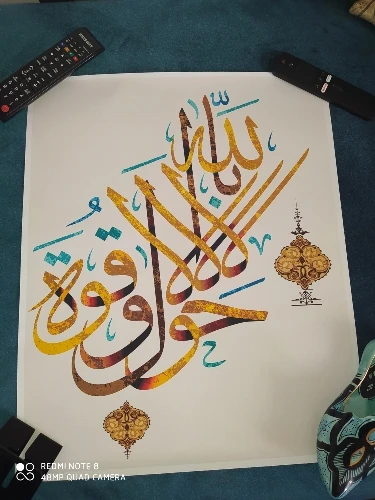 لا حول ولا قوة إلا بالله
REDMI NOTE 8
48MP QUAD CAMERA